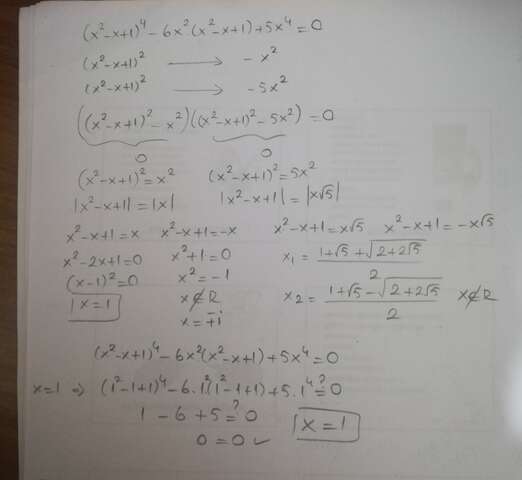 (x²-x+1)⁴ - 6x²(x²-x+1) + 5x⁴ = 0
(x²-x+1)² → - x²
(x²-x+1)² → - 5x²
((x²-x+1)² - x²)((x²-x+1)² - 5x²) = 0
0 0
(x²-x+1)² = x² (x²-x+1)² = 5x²
|x²-x+1| = |x| |x²-x+1| = |x√5|
x²-x+1=x x²-x+1=-x x²-x+1=x√5 x²-x+1=-x√5
x²-2x+1=0 x²+1=0 x₁ = (1+√5+√(2+2√5))/2
(x-1)²=0 x²=-1
x=1 x∉R x₂ = (1+√5-√(2+2√5))/2 x∉R
x=∓i
(x²-x+1)⁴ - 6x²(x²-x+1) + 5x⁴ = 0
x=1 ⇒ (1²-1+1)⁴ - 6.1²(1²-1+1) + 5.1⁴ ≟ 0
1 - 6 + 5 ≟ 0
0 = 0 ✓ x = 1